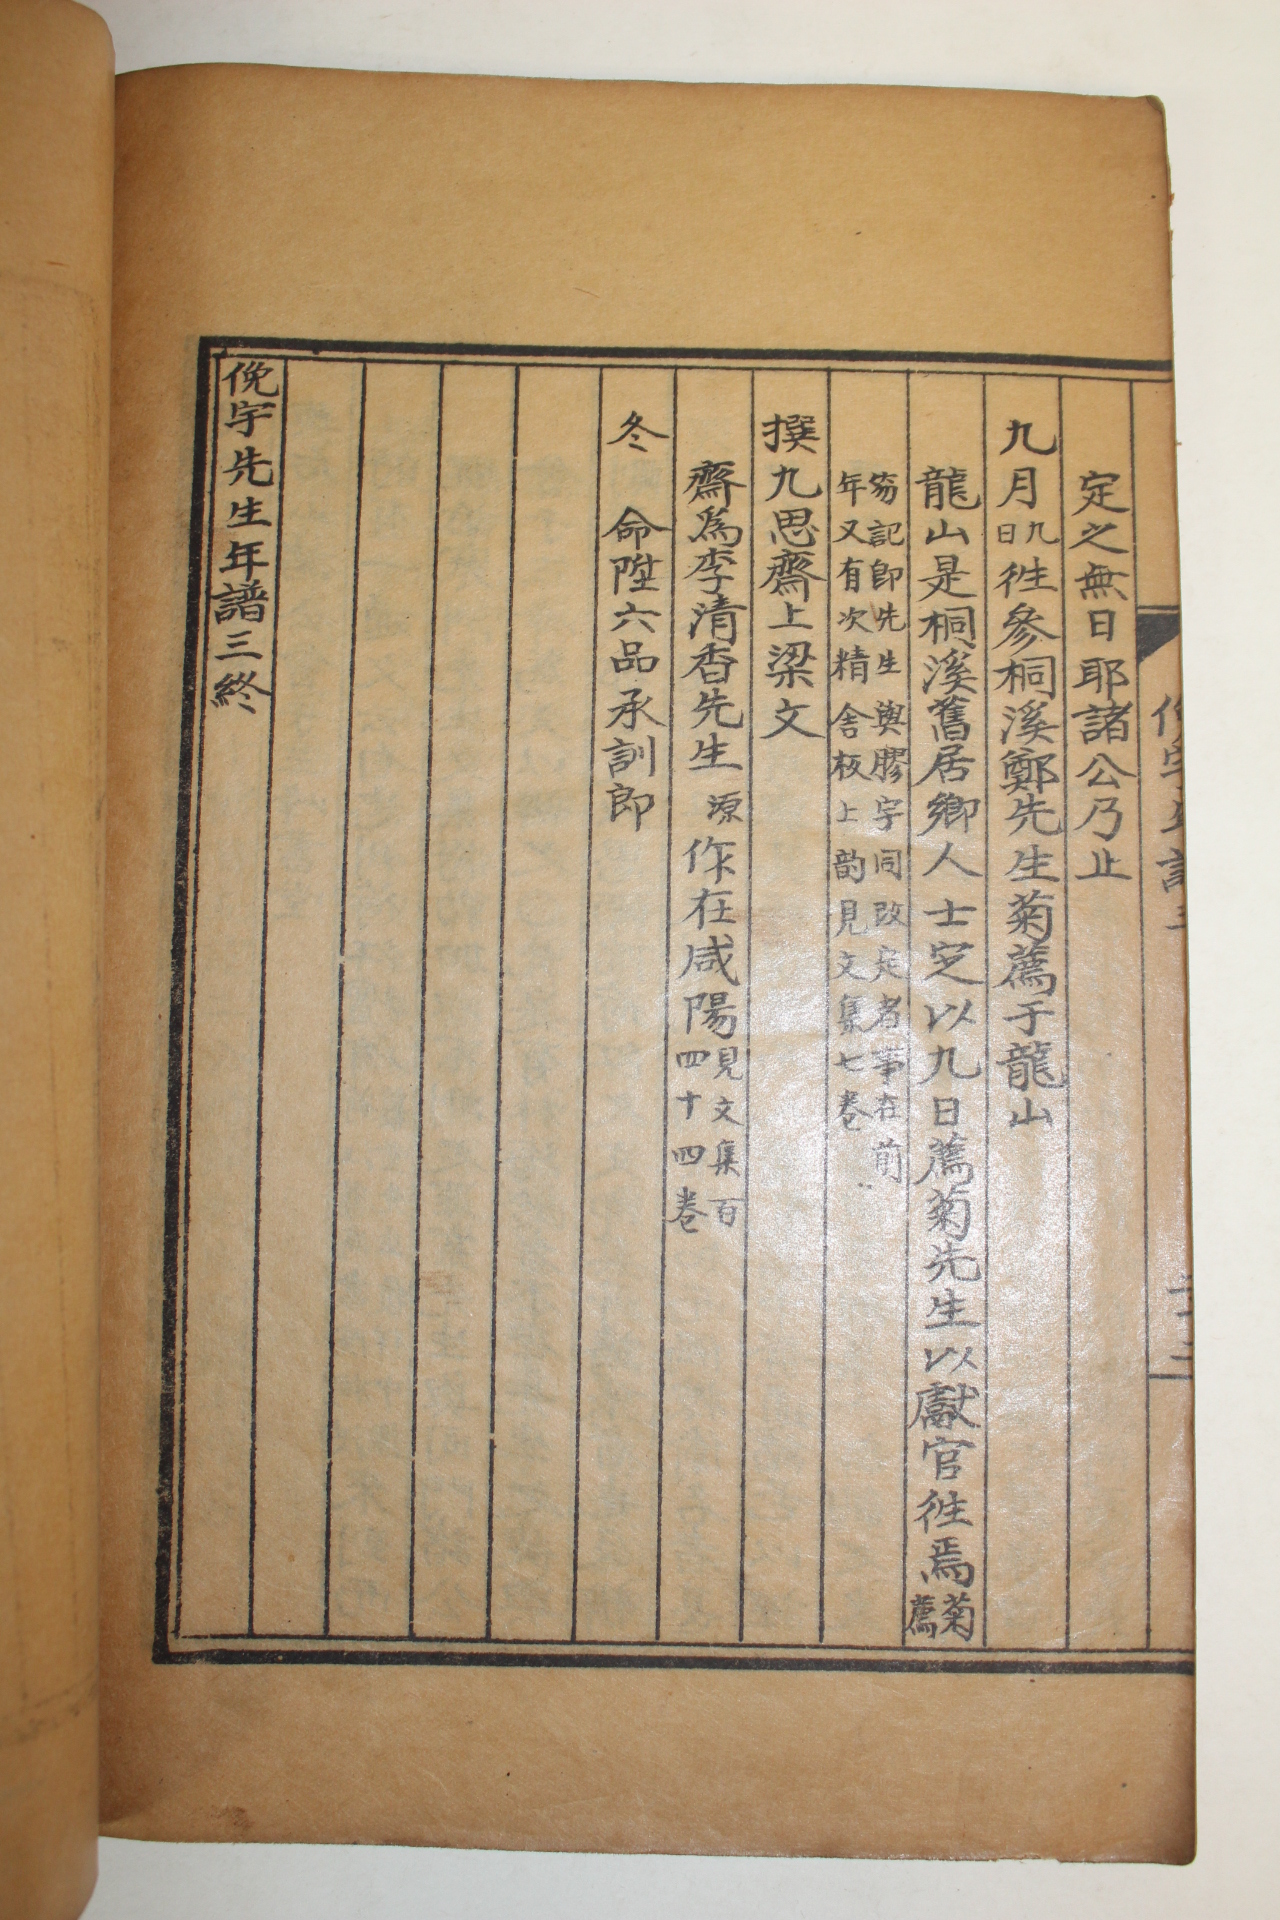 俛宇年譜三
定之無日耶諸公乃止
九月九日徃參桐溪鄭先生菊薦于龍山
龍山是桐溪舊居鄉人士㝎以九日薦菊先生以獻官徃焉菊薦
笏記卽先生與膠宇同改定者事在前
年又有次精舍板上韵見文集七卷
撰九思齋上梁文
齋爲李清香先生源作在咸陽見文集百四十四卷
冬 命陞六品承訓郎
俛宇先生年譜三終